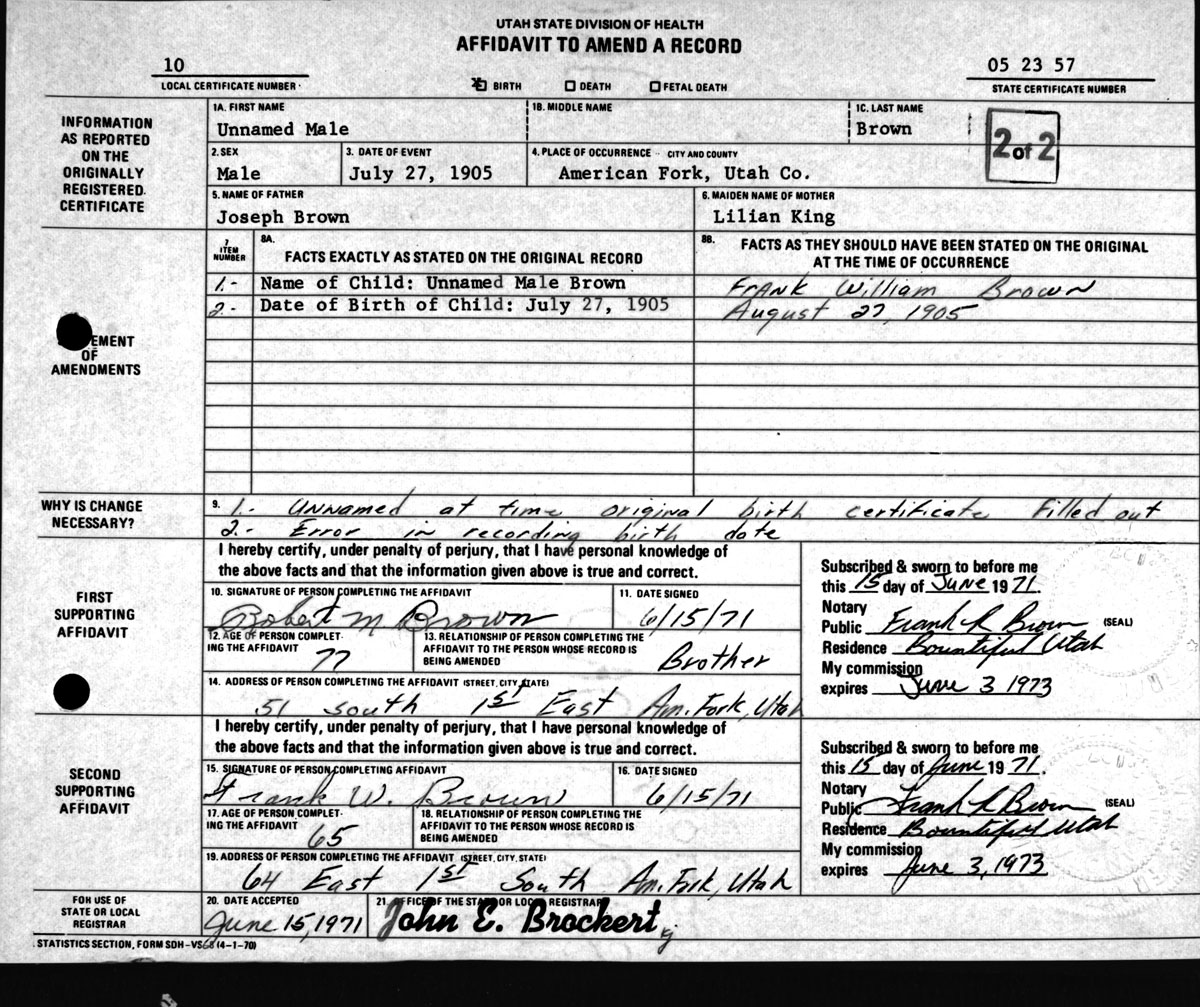 UTAH STATE DIVISION OF HEALTH
AFFIDAVIT TO AMEND A RECORD
10
LOCAL CERTIFICATE NUMBER
X BIRTH DEATH FETAL DEATH
05 23 57
STATE CERTIFICATE NUMBER
INFORMATION
AS REPORTED
ON THE
ORIGINALLY
REGISTERED
CERTIFICATE
1A. FIRST NAME
Unnamed Male
1B. MIDDLE NAME
1C. LAST NAME
Brown
2 of 2
2. SEX
Male
3. DATE OF EVENT
July 27, 1905
4. PLACE OF OCCURRENCE - CITY AND COUNTY
American Fork, Utah Co.
5. NAME OF FATHER
Joseph Brown
6. MAIDEN NAME OF MOTHER
Lilian King
EMENT
OF
AMENDMENTS
7
ITEM
NUMBER
8A.
FACTS EXACTLY AS STATED ON THE ORIGINAL RECORD
8B. FACTS AS THEY SHOULD HAVE BEEN STATED ON THE ORIGINAL
AT THE TIME OF OCCURRENCE
1.- Name of Child: Unnamed Male Brown
Frank William Brown
2.- Date of Birth of Child: July 27, 1905
August 27, 1905
WHY IS CHANGE
NECESSARY?
9. 1.- Unnamed at time original birth certificate filled out
2.- Error in recording birth date
FIRST
SUPPORTING
AFFIDAVIT
I hereby certify, under penalty of perjury, that I have personal knowledge of
the above facts and that the information given above is true and correct.
10. SIGNATURE OF PERSON COMPLETING THE AFFIDAVIT
Robert M Brown
11. DATE SIGNED
6/15/71
12. AGE OF PERSON COMPLET-
ING THE AFFIDAVIT 77
13. RELATIONSHIP OF PERSON COMPLETING THE
AFFIDAVIT TO THE PERSON WHOSE RECORD IS
BEING AMENDED
Brother
14. ADDRESS OF PERSON COMPLETING THE AFFIDAVIT (STREET, CITY, STATE)
51 South 1st East Am. Fork, Utah
Subscribed & sworn to before me
this 15 day of June 1971.
Notary
Public Frank R Brown (SEAL)
Residence Bountiful Utah
My commission
expires June 3 1973
SECOND
SUPPORTING
AFFIDAVIT
I hereby certify, under penalty of perjury, that I have personal knowledge of
the above facts and that the information given above is true and correct.
15. SIGNATURE OF PERSON COMPLETING AFFIDAVIT
Frank W. Brown
16. DATE SIGNED
6/15/71
17. AGE OF PERSON COMPLETING
THE AFFIDAVIT 65
18. RELATIONSHIP OF PERSON COMPLETING THE
AFFIDAVIT TO THE PERSON WHOSE RECORD IS
BEING AMENDED
19. ADDRESS OF PERSON COMPLETING THE AFFIDAVIT (STREET, CITY, STATE)
64 East 1st South Am. Fork, Utah
Subscribed & sworn to before me
this 15 day of June 1971.
Notary
Public Frank R Brown (SEAL)
Residence Bountiful Utah
My commission
expires June 3, 1973
FOR USE OF
STATE OR LOCAL
REGISTRAR
20. DATE ACCEPTED
June 15, 1971
21. OFFICE OF THE STATE OR LOCAL REGISTRAR
John E. Brockert
STATISTICS SECTION, FORM SDH-VS68 (4-1-70)